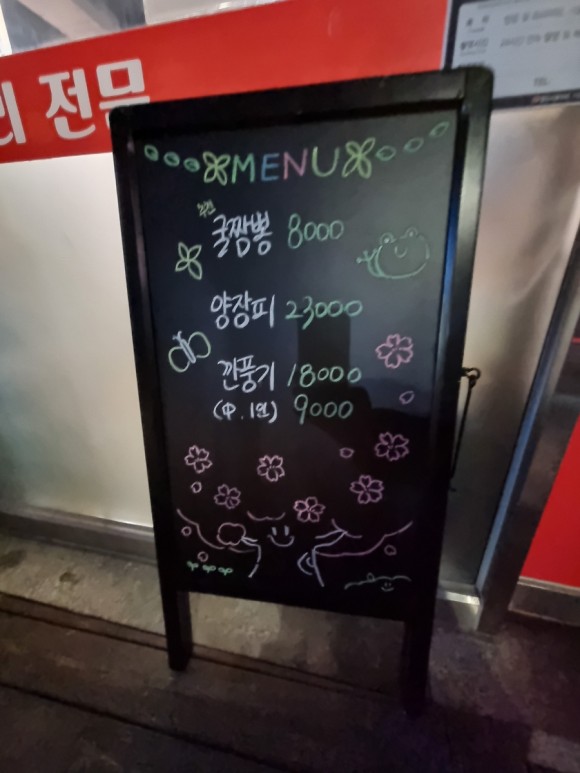 리 전문
MENU
추천
굴짬뽕 8000
양장피 23000
깐풍기 18000
(中.1인) 9000